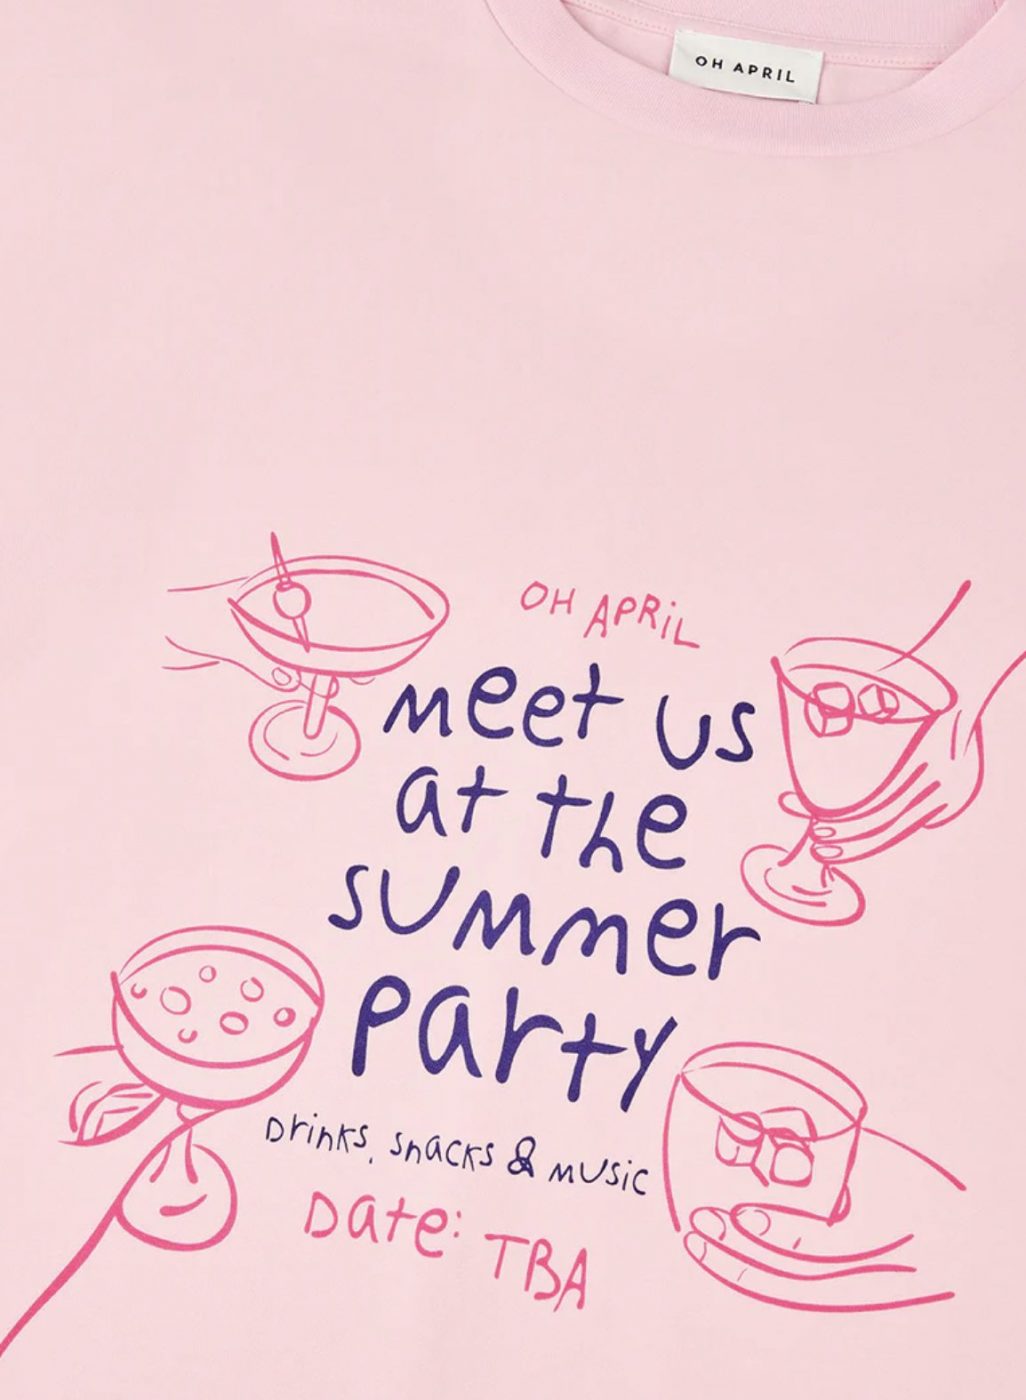 OH APRIL
OH APRiL
meet us
at the
summer
party
Drinks, snacks & music
Date: TBA